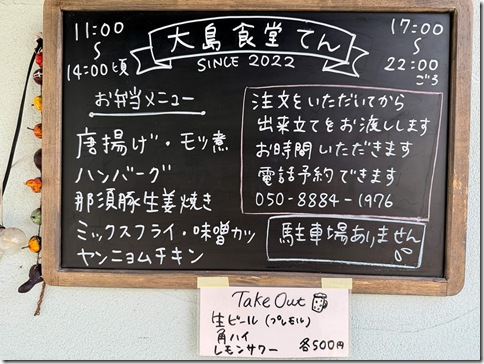 11:00
〜
14:00頃
大島食堂 てん
SINCE 2022
17:00
〜
22:00
ごろ
お弁当メニュー
唐揚げ・モツ煮
ハンバーグ
那須豚生姜焼き
ミックスフライ・味噌カツ
ヤンニョムチキン
注文をいただいてから
出来立てをお渡しします
お時間いただきます
電話予約できます
050-8884-1976
駐車場ありません
Take Out
生ビール(プレモル)
角ハイ
レモンサワー 各500円